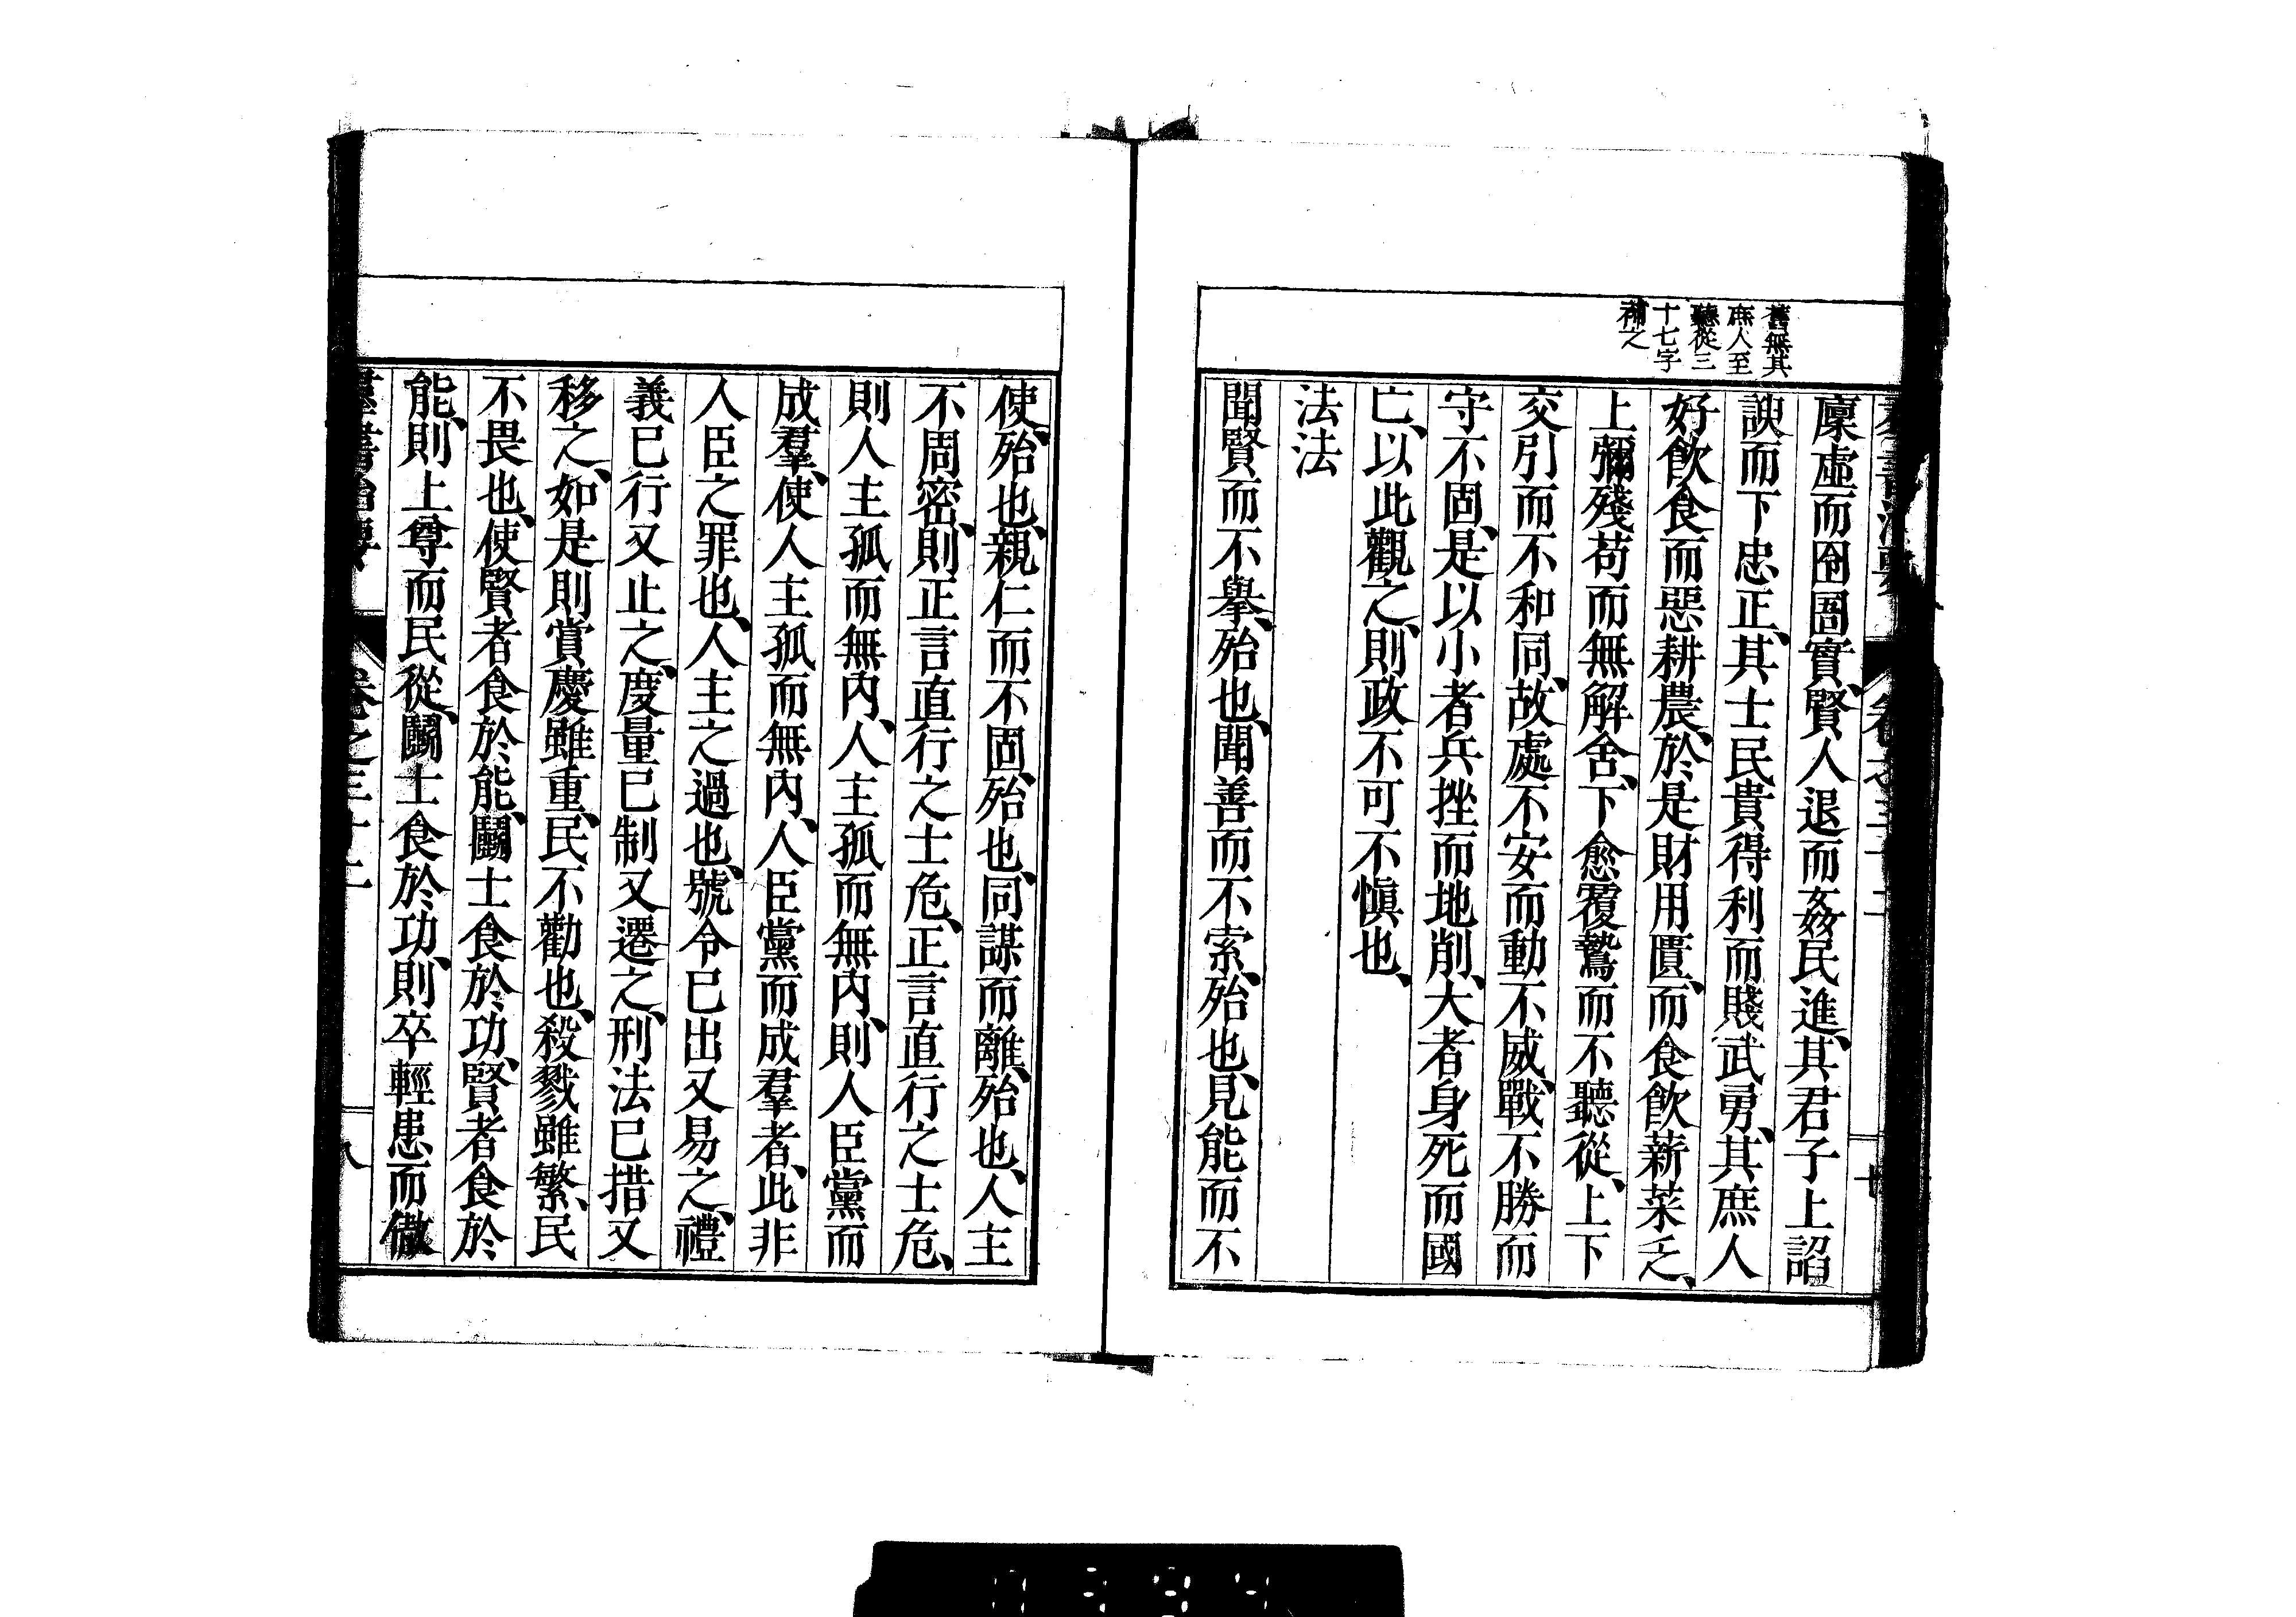 舊無其
庶人至
聽從三
十七字
補之
廩虛而囹圄實、賢人退而姦民進、其君子上諂
諛而下忠正、其士民貴得利而賤武勇、其庶人
好飲食而惡耕農、於是財用匱、而食飲薪菜乏、
上彌殘苟而無解舍、下愈覆鷙而不聽從、上下
交引而不和同、故處不安而動不威、戰不勝而
守不固、是以小者兵挫而地削、大者身死而國
亡、以此觀之、則政不可不慎也、
法法
聞賢而不舉、殆也、聞善而不索、殆也、見能而不
使、殆也、親仁而不固、殆也、同謀而離、殆也、人主
不周密、則正言直行之士危、正言直行之士危、
則人主孤而無內、人主孤而無內、則人臣黨而
成羣、使人主孤而無內、人臣黨而成羣者、此非
人臣之罪也、人主之過也、號令已出又易之、禮
義已行又止之、度量已制又遷之、刑法已措又
移之、如是則賞慶雖重、民不勸也、殺戮雖繁、民
不畏也、使賢者食於能、鬭士食於功、賢者食於
能、則上尊而民從、鬭士食於功、則卒輕患而傲
羣書治要 卷之三十二 八